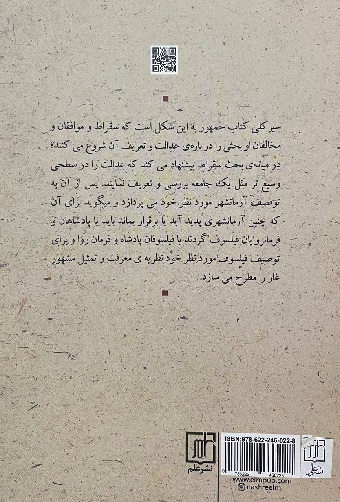 سیر کلی کتاب جمهور به این شکل است که سقراط و موافقان و
مخالفان او بحثی را درباره‌ی عدالت و تعریف آن شروع می کنند؟
در میانه‌ی بحث سقراط پیشنهاد می کند که عدالت را در سطحی
وسیع تر مثل یک جامعه بررسی و تعریف نمایند. پس از آن به
توصیف آرمانشهر مورد نظر خود می پردازد و میگوید برای آن
که چنین آرمانشهری پدید آید یا برقرار بماند باید یا پادشاهان و
فرمانروایان فیلسوف گردند یا فیلسوفان پادشاه و فرمان روا و برای
توصیف فیلسوف مورد نظر خود نظریه ی معرفت و تمثیل مشهور
غار را مطرح می سازد.
ISBN: 978-622-246-022-8
نشر علم
نشر علم
www.elmpub.com
nashreelm